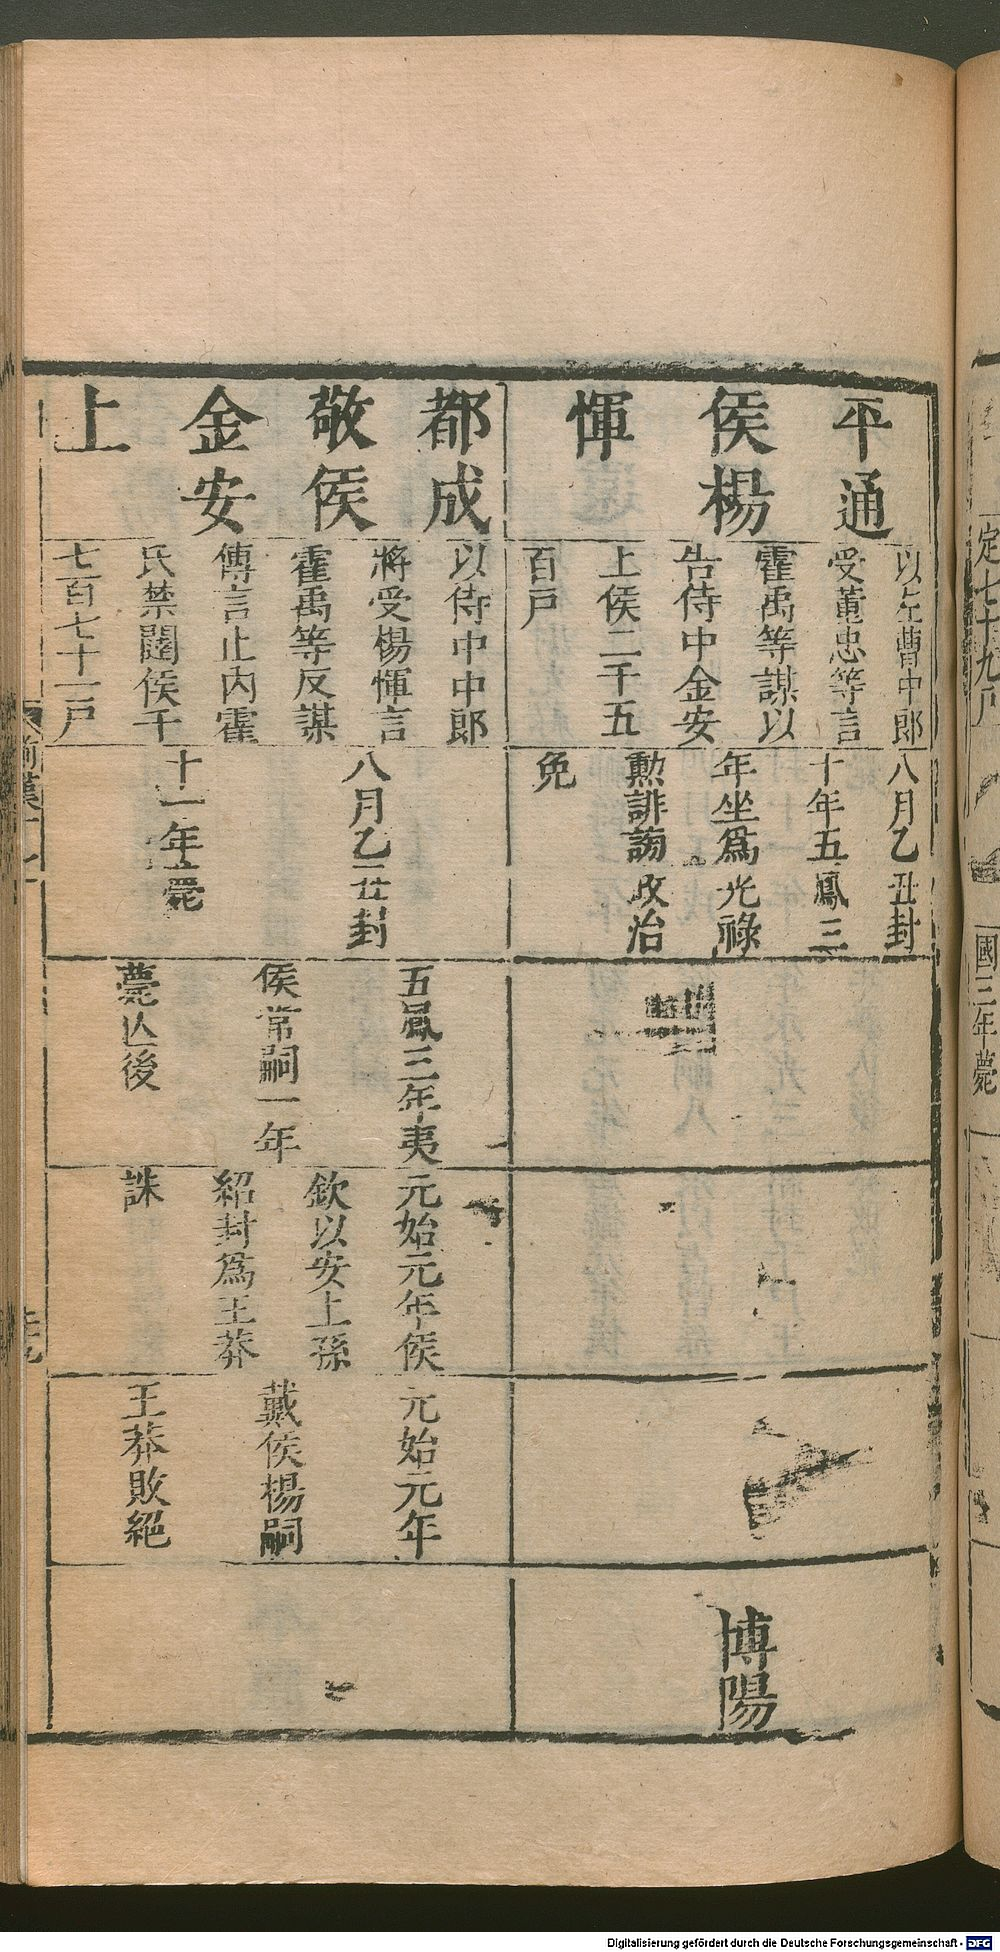 平通
侯楊
惲
以左曹中郎
受董忠等言
霍禹等謀以
告侍中金安
上侯二千五
百戸
八月乙丑封
十年五鳳三
年坐爲光祿
勲誹謗政治
免
博陽
都成
敬侯
金安
上
以侍中中郎
將受楊惲言
霍禹等反謀
傳言止内霍
氏禁闥侯千
七百七十一戸
八月乙丑封
十一年薨
五鳳三年夷
侯常嗣一年
薨亾後
元始元年侯
欽以安上孫
紹封爲王莽
誅
元始元年
戴侯楊嗣
王莽敗絕
定七十九戸
國三年薨
前漢
Digitalisierung gefördert durch die Deutsche Forschungsgemeinschaft - DFG